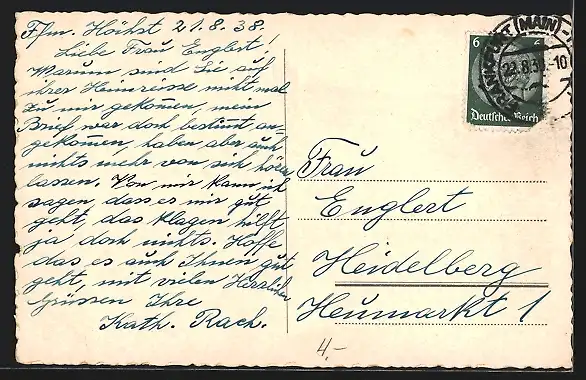 Ffm. Höchst 21.8.38.
Liebe Frau Englert!
Warum sind Sie auf
ihrer Heimreise nicht mal
zu mir gekom̅en, mein
Brief war doch bestim̅t an-
gekommen, haben aber auch
nichts mehr von sich hören
lassen. Von mir kann ich
sagen, dass es mir gut
geht, das klagen hilft
ja doch nichts. Hoffe
das es auch Ihnen gut
geht, mit vielen Herzlichen
Grüssen Ihre
Kath. Rach.
FRANKFURT (MAIN)
6 6
Deutsches Reich
Frau
Englert
Heidelberg
Heumarkt 1
4,-